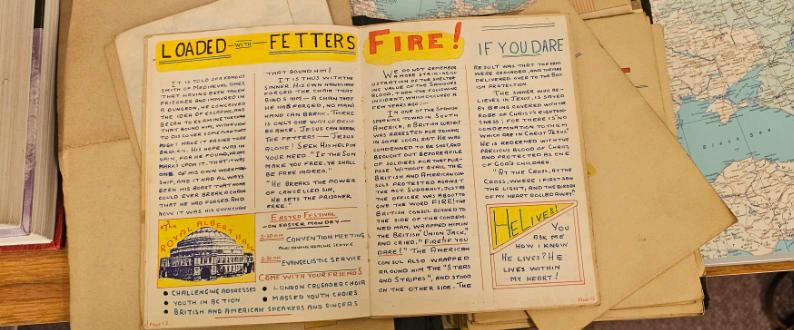 LOADED WITH FETTERS
IT IS TOLD OF A FAMOUS
SMITH OF MEDIEVAL TIMES,
THAT HAVING BEEN TAKEN
PRISONER AND IMMURED IN
A DUNGEON, HE CONCEIVED
THE IDEA OF ESCAPE, AND
BEGAN TO EXAMINE THE CHAIN
THAT BOUND HIM, WITH A VIEW
TO DISCOVER SOME FLAW THAT
MIGHT MAKE IT EASIER TO BE
BROKEN. HIS HOPE WAS IN
VAIN, FOR HE FOUND, FROM
MARKS UPON IT, THAT IT WAS
ONE OF HIS OWN WORKMAN-
SHIP, AND IT HAD ALWAYS
BEEN HIS BOAST THAT NONE
COULD EVER BREAK A CHAIN
THAT HE HAD FORGED. AND
NOW IT WAS HIS OWN CHAIN
THAT BOUND HIM!
IT IS THUS WITH THE
SINNER. HIS OWN HANDS HAVE
FORGED THE CHAIN THAT
BINDS HIM — A CHAIN THAT
HE HAS FORGED, NO MAN'S
HAND CAN BREAK. THERE
IS ONLY ONE WAY OF DELIV-
ERANCE. JESUS CAN BREAK
THE FETTERS — JESUS
ALONE! SEEK HIS HELP IN
YOUR NEED "IF THE SON
MAKE YOU FREE, YE SHALL
BE FREE INDEED."
"HE BREAKS THE POWER
OF CANCELLED SIN,
HE SETS THE PRISONER
FREE."
The
ROYAL ALBERT HALL
EASTER FESTIVAL
- ON EASTER MONDAY -
CONVENTION MEETING
AND DIVINE HEALING SERVICE
EVANGELISTIC SERVICE
COME WITH YOUR FRIENDS
• CHALLENGING ADDRESSES
• YOUTH IN ACTION
• LONDON CRUSADER CHOIR
• MASSED YOUTH CHOIRS
• BRITISH AND AMERICAN SPEAKERS AND SINGERS
FIRE! IF YOU DARE
WE DO NOT REMEMBER
A MORE STRIKING ILL-
USTRATION OF THE SHELTER-
ING VALUE OF THE SAVIOUR'S
BLOOD, THAN THE FOLLOWING
INCIDENT, WHICH OCCURRED A
FEW YEARS AGO:—
IN ONE OF THE SPANISH
SPEAKING TOWNS IN SOUTH
AMERICA, A BRITISH SUBJECT
WAS ARRESTED FOR TAKING PART
IN SOME LOCAL RIOT. HE WAS
CONDEMNED TO BE SHOT, AND
BROUGHT OUT BEFORE A FILE
OF SOLDIERS FOR THAT PUR-
POSE. WITHOUT AVAIL, THE
BRITISH AND AMERICAN CON-
SULS PROTESTED AGAINST
THE ACT. SUDDENLY, JUST AS
THE OFFICER WAS ABOUT TO
GIVE THE WORD FIRE! THE
BRITISH CONSUL RUSHED TO
THE SIDE OF THE CONDEM-
NED MAN, WRAPPED HIM IN
THE BRITISH "UNION JACK,"
AND CRIED, "FIRE! IF YOU
DARE!" THE AMERICAN
CONSUL ALSO WRAPPED
AROUND HIM THE "STARS
AND STRIPES", AND STOOD
ON THE OTHER SIDE. THE
RESULT WAS THAT THE MEN
WERE DELIVERED OVER TO THE BRIT-
ISH PROTECTION.
THE SINNER WHO BE-
LIEVES IN JESUS, IS SAVED
BY BEING COVERED WITH THE
ROBE OF CHRIST'S RIGHTEOUS-
NESS: FOR THERE IS NO
CONDEMNATION TO THEM
WHICH ARE IN CHRIST JESUS!
HE IS REDEEMED WITH THE
PRECIOUS BLOOD OF CHRIST
AND PROTECTED AS ONE
OF GOD'S CHILDREN.
"AT THE CROSS, AT THE
CROSS, WHERE I FIRST SAW
THE LIGHT, AND THE BURDEN
OF MY HEART ROLLED AWAY."
HE LIVES!
YOU
ASK ME
HOW I KNOW
HE LIVES? HE
LIVES WITHIN
MY HEART!
Black Sea